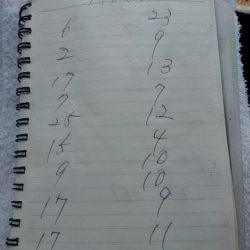 6 23
2 9
17 13
7 7
25 12
15 4
9 10
10
17 9
17 11